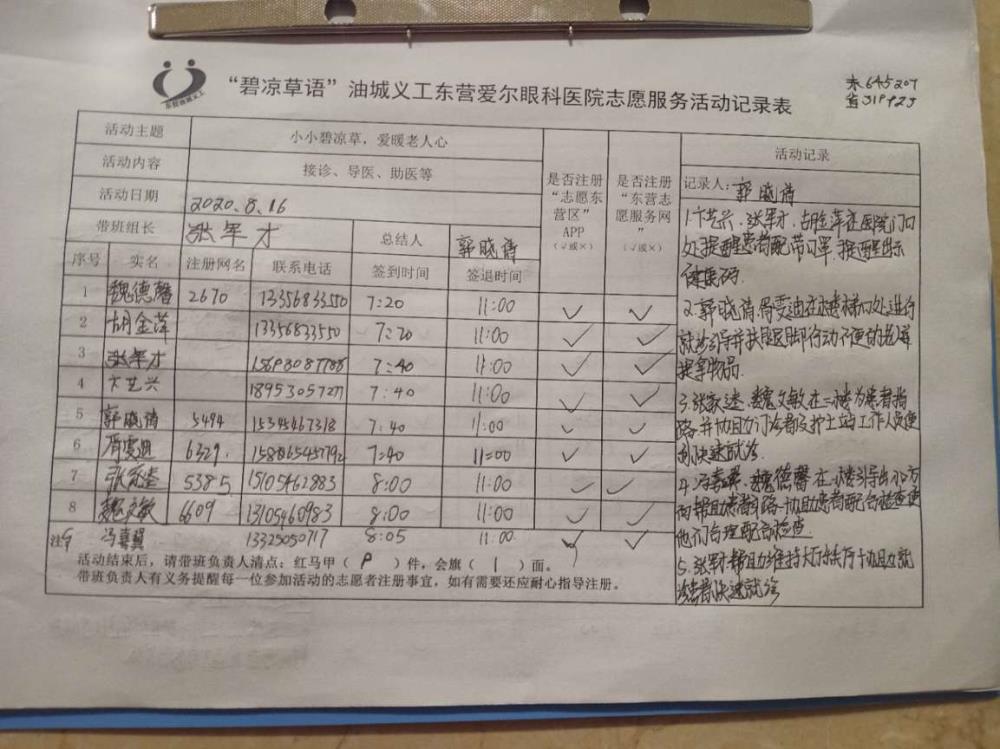 东营油城义工
“碧凉草语”油城义工东营爱尔眼科医院志愿服务活动记录表
东645207
活动主题 小小碧凉草，爱暖老人心
活动内容 接诊、导医、助医等
活动日期 2020.8.16
带班组长 张军才 总结人 郭晓倩
是否注册“志愿东营区”APP（√或×）
是否注册“东营志愿服务网”（√或×）
序号 实名 注册网名 联系电话 签到时间 签退时间
1 魏德馨 2670 13356833550 7:20 11:00 ✓ ✓
2 胡金萍 13356833550 7:20 11:00 ✓ ✓
3 张军才 7:40 11:00 ✓ ✓
4 卞艺兴 18953057277 7:40 11:00 ✓ ✓
5 郭晓倩 5494 15345467318 7:40 11:00 ✓ ✓
6 6329. 7:40 11:00 ✓ ✓
7 5385 15105462883 8:00 11:00 ✓ ✓
8 魏文敏 6609 13105460983 8:00 11:00 ✓ ✓
注9 13325050717 8:05 11:00 ✓ ✓
活动结束后，请带班负责人清点：红马甲（ P ）件，会旗（ 1 ）面。
带班负责人有义务提醒每一位参加活动的志愿者注册事宜，如有需要还应耐心指导注册。
活动记录
记录人：郭晓倩
1.卞艺兴、张军才、胡金萍在医院门口
处提醒患者配带口罩，提醒出示
健康码.
2.郭晓倩、在楼梯口处进行
就诊引导并扶行动不便的
提拿物品.
3.魏文敏在二楼为患者指
路并协助门诊及护士站工作人员
快速就诊
4.魏德馨在楼引导
帮助患者引路协助患者配合检查使
他们合理配合检查
5.张军才帮助维持大厅秩序协助就
诊患者快速就诊